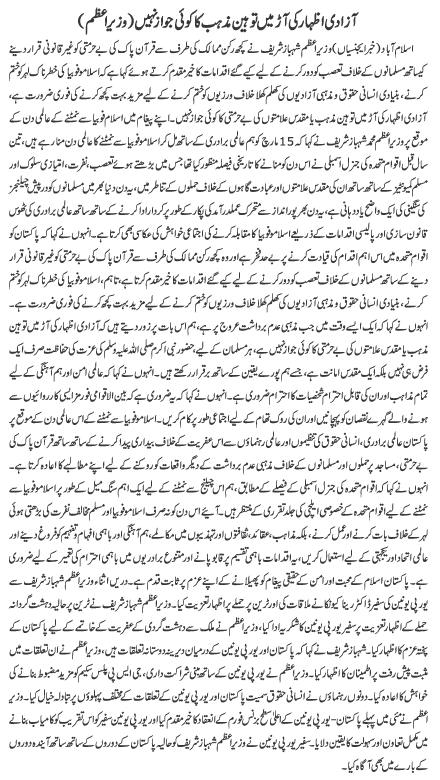 آزادی اظہار کی آڑ میں توہین مذہب کا کوئی جواز نہیں (وزیراعظم)
اسلام آباد (خبر ایجنسیاں) وزیراعظم شہباز شریف نے کچھ رکن ممالک کی طرف سے قرآن پاک کی بے حرمتی کو غیر قانونی قرار دینے
کیساتھ مسلمانوں کے خلاف تعصب کو دور کرنے کے لیے کئے گئے اقدامات کا خیر مقدم کرتے ہوئے کہا ہے کہ اسلامو فوبیا کی خطرناک لہر کو
ختم کرنے، بنیادی انسانی حقوق و مذہبی آزادیوں کی کھلم کھلا خلاف ورزیوں کو ختم کرنے کے لیے مزید بہت کچھ کرنے کی فوری ضرورت ہے،
آزادی اظہار کی آڑ میں توہین مذہب یا مقدس علامتوں کی بے حرمتی کا کوئی جواز نہیں ہے۔ اپنے پیغام میں اسلاموفوبیا سے نمٹنے کے عالمی دن کے
موقع پر وزیراعظم محمد شہباز شریف نے کہا کہ 15 مارچ کو ہم عالمی برادری کے ساتھ مل کر اسلاموفوبیا سے نمٹنے کے عالمی دن منا رہے ہیں، تین
سال قبل اقوام متحدہ کی جنرل اسمبلی نے اس دن کو منانے کا تاریخی فیصلہ منظور کیا تھا جس میں بڑھتے ہوئے تعصب، نفرت، امتیازی سلوک اور
مسلم کمیونٹیز کے ساتھ ساتھ ان کی مقدس علامتوں اور عبادت گاہوں کے خلاف حملوں کے تناظر میں، یہ دن دنیا بھر میں مسلمانوں کو درپیش چیلنجز
کی سنگینی کی ایک واضح یاد دہانی ہے، یہ دن بھرپور انداز سے متحرک عملدرآمد کی پکار کے طور پر کردار ادا کرنے کے ساتھ ساتھ عالمی برادری کی ٹھوس
قانون سازی اور پالیسی اقدامات کے ذریعے اسلاموفوبیا کا مقابلہ کرنے کی اجتماعی خواہش کی عکاسی بھی کرتا ہے۔ انہوں نے کہا کہ پاکستان کو
اقوام متحدہ میں اس اہم اقدام کی قیادت کرنے پر بے حد فخر ہے اور وہ کچھ رکن ممالک کی طرف سے قرآن پاک کی بے حرمتی کو غیر قانونی قرار
دینے کے ساتھ ساتھ مسلمانوں کے خلاف تعصب کو دور کرنے کے لیے کئے گئے اقدامات کا خیر مقدم کرتا ہے، تاہم، اسلاموفوبیا کی خطرناک لہر کو ختم
کرنے، بنیادی انسانی حقوق و مذہبی آزادیوں کی کھلم کھلا خلاف ورزیوں کو ختم کرنے کے لیے مزید بہت کچھ کرنے کی فوری ضرورت ہے۔
انہوں نے کہا کہ ایک ایسے وقت میں جب مذہبی عدم برداشت عروج پر ہے، ہم اس بات پر زور دیتے ہیں کہ آزادی اظہار کی آڑ میں توہین
مذہب یا مقدس علامتوں کی بے حرمتی کا کوئی جواز نہیں ہے، ہر مسلمان کے لیے حضور نبی اکرم صلی اللہ علیہ وسلم کی عزت کی حفاظت صرف ایک
فرض ہی نہیں بلکہ ایک مقدس امانت ہے، جسے ہم پورے یقین کے ساتھ برقرار رکھتے ہیں۔ انہوں نے کہا کہ عالمی امن اور ہم آہنگی کے لیے
تمام مذاہب اور ان کی قابل احترام شخصیات کا احترام ضروری ہے۔ انہوں نے کہا کہ یہ ضروری ہے کہ بین الاقوامی فورمز ایسی کارروائیوں سے
ہونے والے گہرے نقصان کو پہچانیں اور ان کی روک تھام کے لیے اجتماعی طور پر کام کریں۔ اسلاموفوبیا سے نمٹنے کے اس عالمی دن کے موقع پر
پاکستان عالمی برادری، انسانی حقوق کی تنظیموں اور عالمی رہنماؤں سے اس عفریت کے خلاف بیداری پیدا کرنے کے ساتھ ساتھ قرآن پاک کی
بے حرمتی، مساجد پر حملوں اور مسلمانوں کے خلاف مذہبی عدم برداشت کے دیگر واقعات کو روکنے کے لیے اپنے مطالبے کا اعادہ کرتا ہے۔
انہوں نے کہا کہ اقوام متحدہ کی جنرل اسمبلی کے فیصلے کے مطابق، ہم اس چیلنج سے نمٹنے کے لیے ایک اہم سنگ میل کے طور پر اسلاموفوبیا سے
نمٹنے کے لیے اقوام متحدہ کے خصوصی ایلچی کی جلد تقرری کے منتظر ہیں۔ آیئے اس دن کو نہ صرف اسلاموفوبیا اور مسلم مخالف نفرت کی بڑھتی ہوئی
لہر کے خلاف بات کرنے اور عمل کرنے، بلکہ مذاہب، عقائد، ثقافتوں اور تہذیبوں میں مکالمے، ہم آہنگی اور باہمی افہام و تفہیم کو فروغ دینے اور
عالمی اتحاد اور یکجہتی کے لیے استعمال کریں، یہ اقدامات باہمی تقسیم پر قابو پانے اور متنوع برادریوں میں باہمی احترام کی تعمیر کے لیے ضروری
ہے۔ پاکستان اسلام کے محبت اور امن کے حقیقی پیغام کو پھیلانے کے اپنے عزم پر ثابت قدم ہے۔ دریں اثناء وزیراعظم شہباز شریف سے
یورپی یونین کی سفیر ڈاکٹر رینا کیونکا نے ملاقات کی اور ٹرین پر حملے پر اظہار تعزیت کیا۔ وزیراعظم شہباز شریف نے ٹرین پر حالیہ دہشت گردانہ
حملے کے اظہار تعزیت پر سفیر یورپی یونین کا شکریہ ادا کیا، وزیراعظم نے ملک سے دہشت گردی کے عفریت کے خاتمے کے لیے پاکستان کے
پختہ عزم کا اظہار کیا۔ شہباز شریف نے کہا کہ پاکستان اور یورپی یونین کے درمیان دیرینہ دوستانہ تعلقات ہیں، وزیراعظم نے ان تعلقات میں
مثبت پیش رفت پر اطمینان کا اظہار کیا۔ وزیراعظم نے یورپی یونین کے ساتھ مبنی شراکت داری، جی ایس پی پلس سکیم کو مزید مضبوط بنانے کی
خواہش کا اعادہ کیا۔ دونوں رہنماؤں نے انسانی حقوق سمیت پاکستان اور یورپی یونین کے تعلقات کے مختلف پہلوؤں پر تبادلہ خیال کیا۔ وزیر
اعظم نے مئی میں پہلے پاکستان - یورپی یونین کے اعلیٰ سطح بزنس فورم کے انعقاد کا خیر مقدم کیا اور یورپی یونین کے سفیر کو اس تقریب کو کامیاب بنانے
میں مکمل تعاون اور سہولت کا یقین دلایا۔ سفیر یورپی یونین نے وزیراعظم شہباز شریف کو حالیہ پاکستان کے دوروں کے ساتھ ساتھ آئندہ دوروں
کے بارے میں بھی آگاہ کیا۔